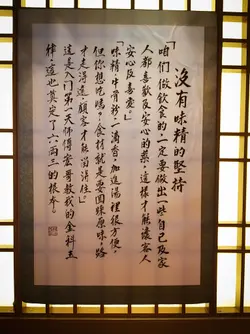 沒有味精的堅持
「咱們做飲食的,一定要做出一些自己及家
人都喜歡及安心的菜,這樣才能讓客人
安心及喜愛。」
「味精,牛骨粉,一滴香,加進湯裡很方便,
但你想吃嗎?食材就是要回歸原味,路
才走得遠,顧客才能留得住」
這是入門第一天師傅
教我的金科玉
律,這也奠定了六兩三的根本。